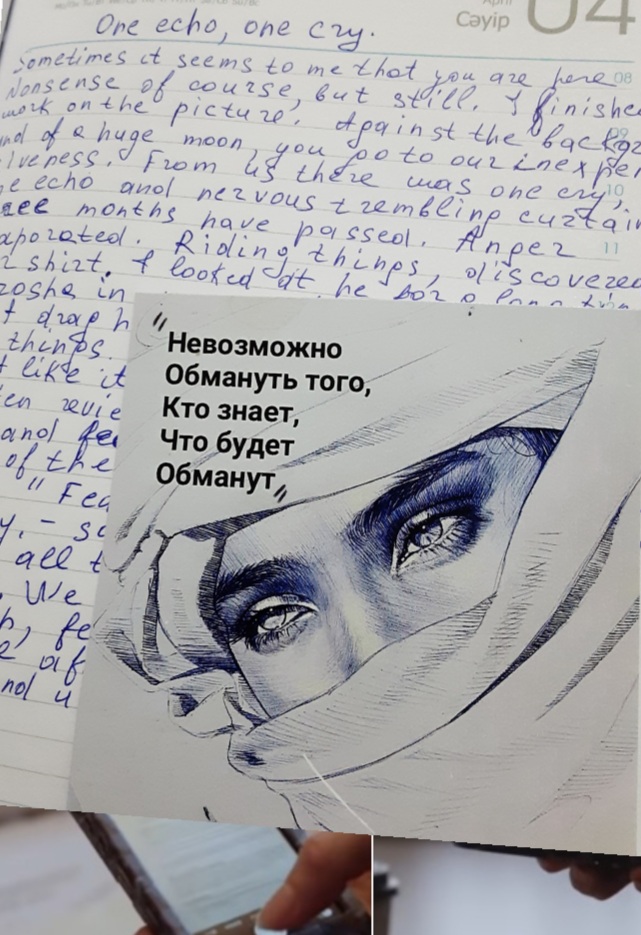 April
Сәуір 04
One echo, one cry.
Sometimes it seems to me that you are here 08
Nonsense of course, but still. I finishe
work on the picture. Against the backgr 09
nd of a huge moon, you go to our inexper
iveness. From us there was one cry,
e echo and nervous trembling curtain 10
ree months have passed. Anger
aporated. Riding things, discovered 11
r shirt. I looked at he for a long tim
rosha in
t drap h
things.
t like it
en revie
and fee
of the
" Fea
y, - sa
all t
. We
h, fe
e af
nd u
"Невозможно
Обмануть того,
Кто знает,
Что будет
Обманут"